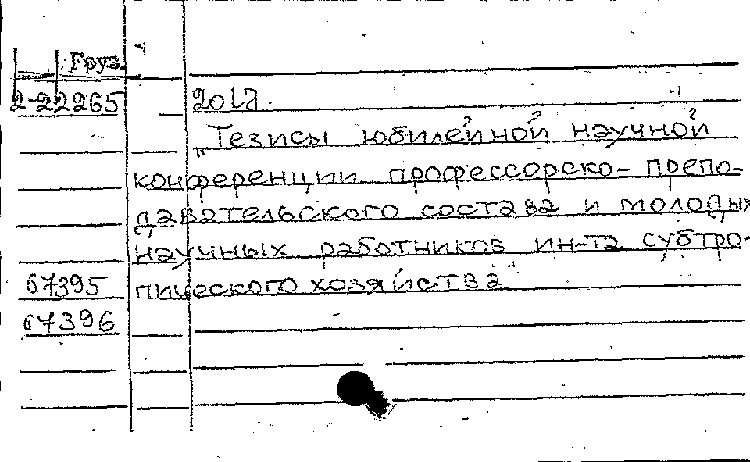 Груз.
2-22265 2017.
„Тезисы юбилейной научной
конференции профессорско-препо-
давательского состава и молодых
научных работников ин-та субтро-
67395 пического хозяйства"
67396